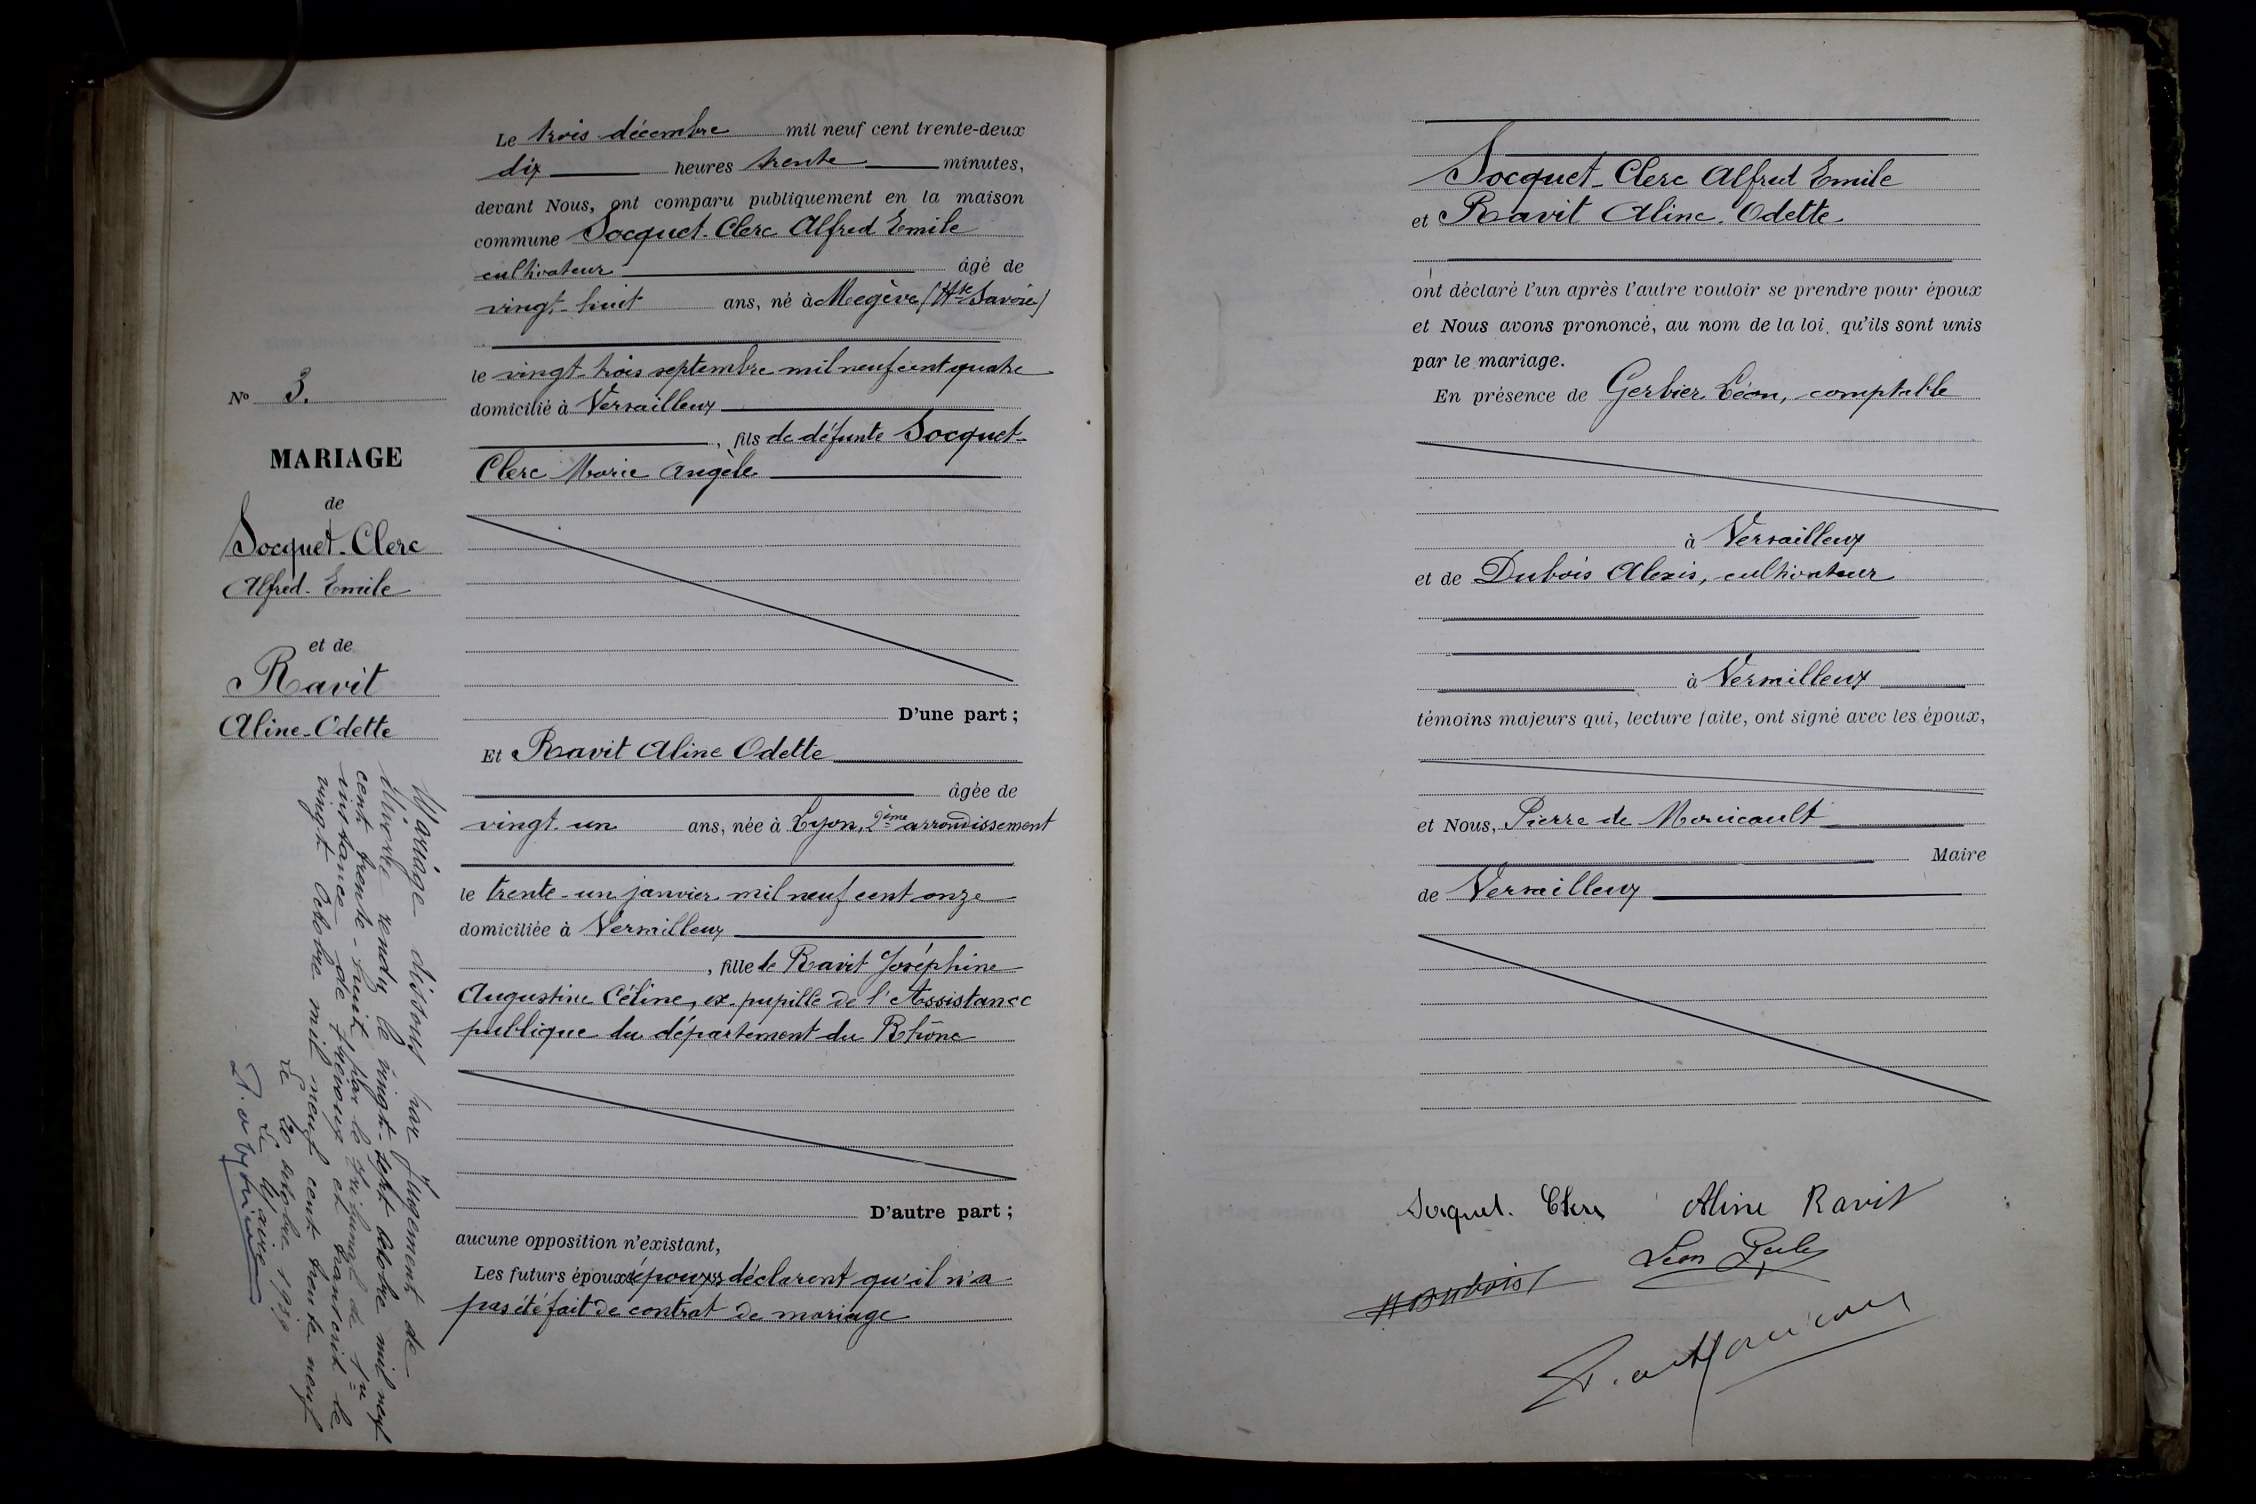 Le trois décembre mil neuf cent trente-deux
dix heures trente minutes,
devant Nous, ont comparu publiquement en la maison
commune Socquet-Clerc Alfred Emile
cultivateur âgé de
vingt-huit ans, né à Megève (Hte Savoie)
le vingt-trois septembre mil neuf cent quatre
domicilié à Versailleux
, fils de défunte Socquet-
Clerc Marie Angèle
D'une part ;
Et Ravit Aline Odette
âgée de
vingt un ans, née à Lyon, 2ème arrondissement
le trente-un janvier mil neuf cent onze
domiciliée à Versailleux
, fille de Ravit Joséphine
Augustine Céline, ex-pupille de l'Assistance
publique du département du Rhône
D'autre part ;
aucune opposition n'existant,
Les futurs époux déclarent qu'il n'a
pas été fait de contrat de mariage
No 3.
MARIAGE
de
Socquet-Clerc
Alfred-Emile
et de
Ravit
Aline-Odette
Mariage dissous par jugement de
divorce rendu le vingt-sept octobre mil neuf
cent trente-huit par le tribunal de 1re
instance de Trévoux et transcrit le
vingt octobre mil neuf cent trente neuf
Le 20 octobre 1939
Le Maire
Socquet-Clerc Alfred Emile
et Ravit Aline Odette
ont déclaré l'un après l'autre vouloir se prendre pour époux
et Nous avons prononcé, au nom de la loi, qu'ils sont unis
par le mariage.
En présence de Gerbier Léon, comptable
à Versailleux
et de Dubois Alexis, cultivateur
à Versailleux
témoins majeurs qui, lecture faite, ont signé avec les époux,
et Nous, Pierre de Monicault
Maire
de Versailleux
Socquet. Clerc Aline Ravit
Léon
A Dubois
P. de Monicault